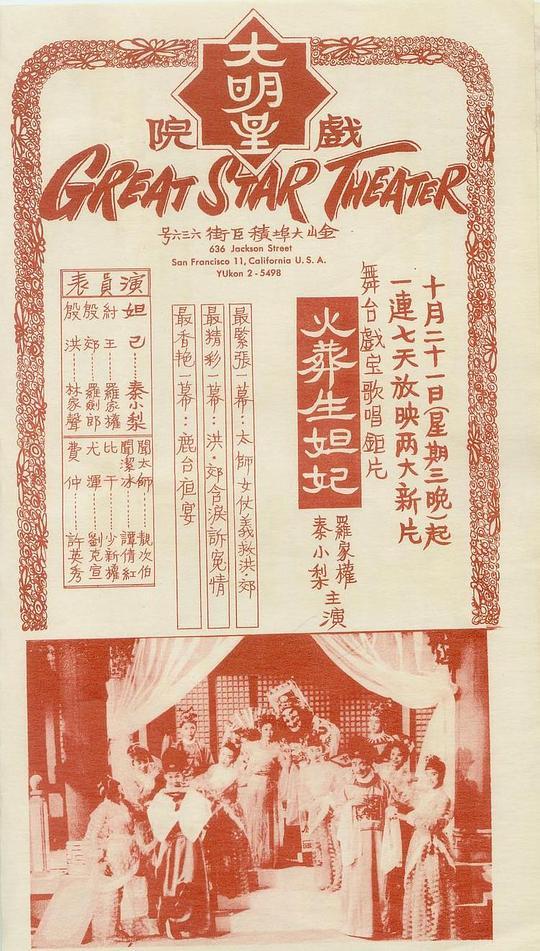 大明星
戲院
GREAT STAR THEATER
金山大埠積臣街六三六号
636 Jackson Street
San Francisco 11, California U. S. A.
YUkon 2 - 5498
十月二十一日(星期三晚)起
一連七天放映两大新片
舞台戲宝歌唱鉅片
火葬生妲妃
羅家權
秦小梨
主演
最緊張一幕：太師女仗義救洪．郊
最精彩一幕：洪．郊含淚訴冤情
最香艳一幕：鹿台夜宴
演員表
妲己……秦小梨
紂王……羅家權
殷郊……羅劍郎
殷洪……林家聲
聞太師……靓次伯
聞潔冰……譚倩紅
比干……少新權
尤渾……劉克宣
費仲……許英秀